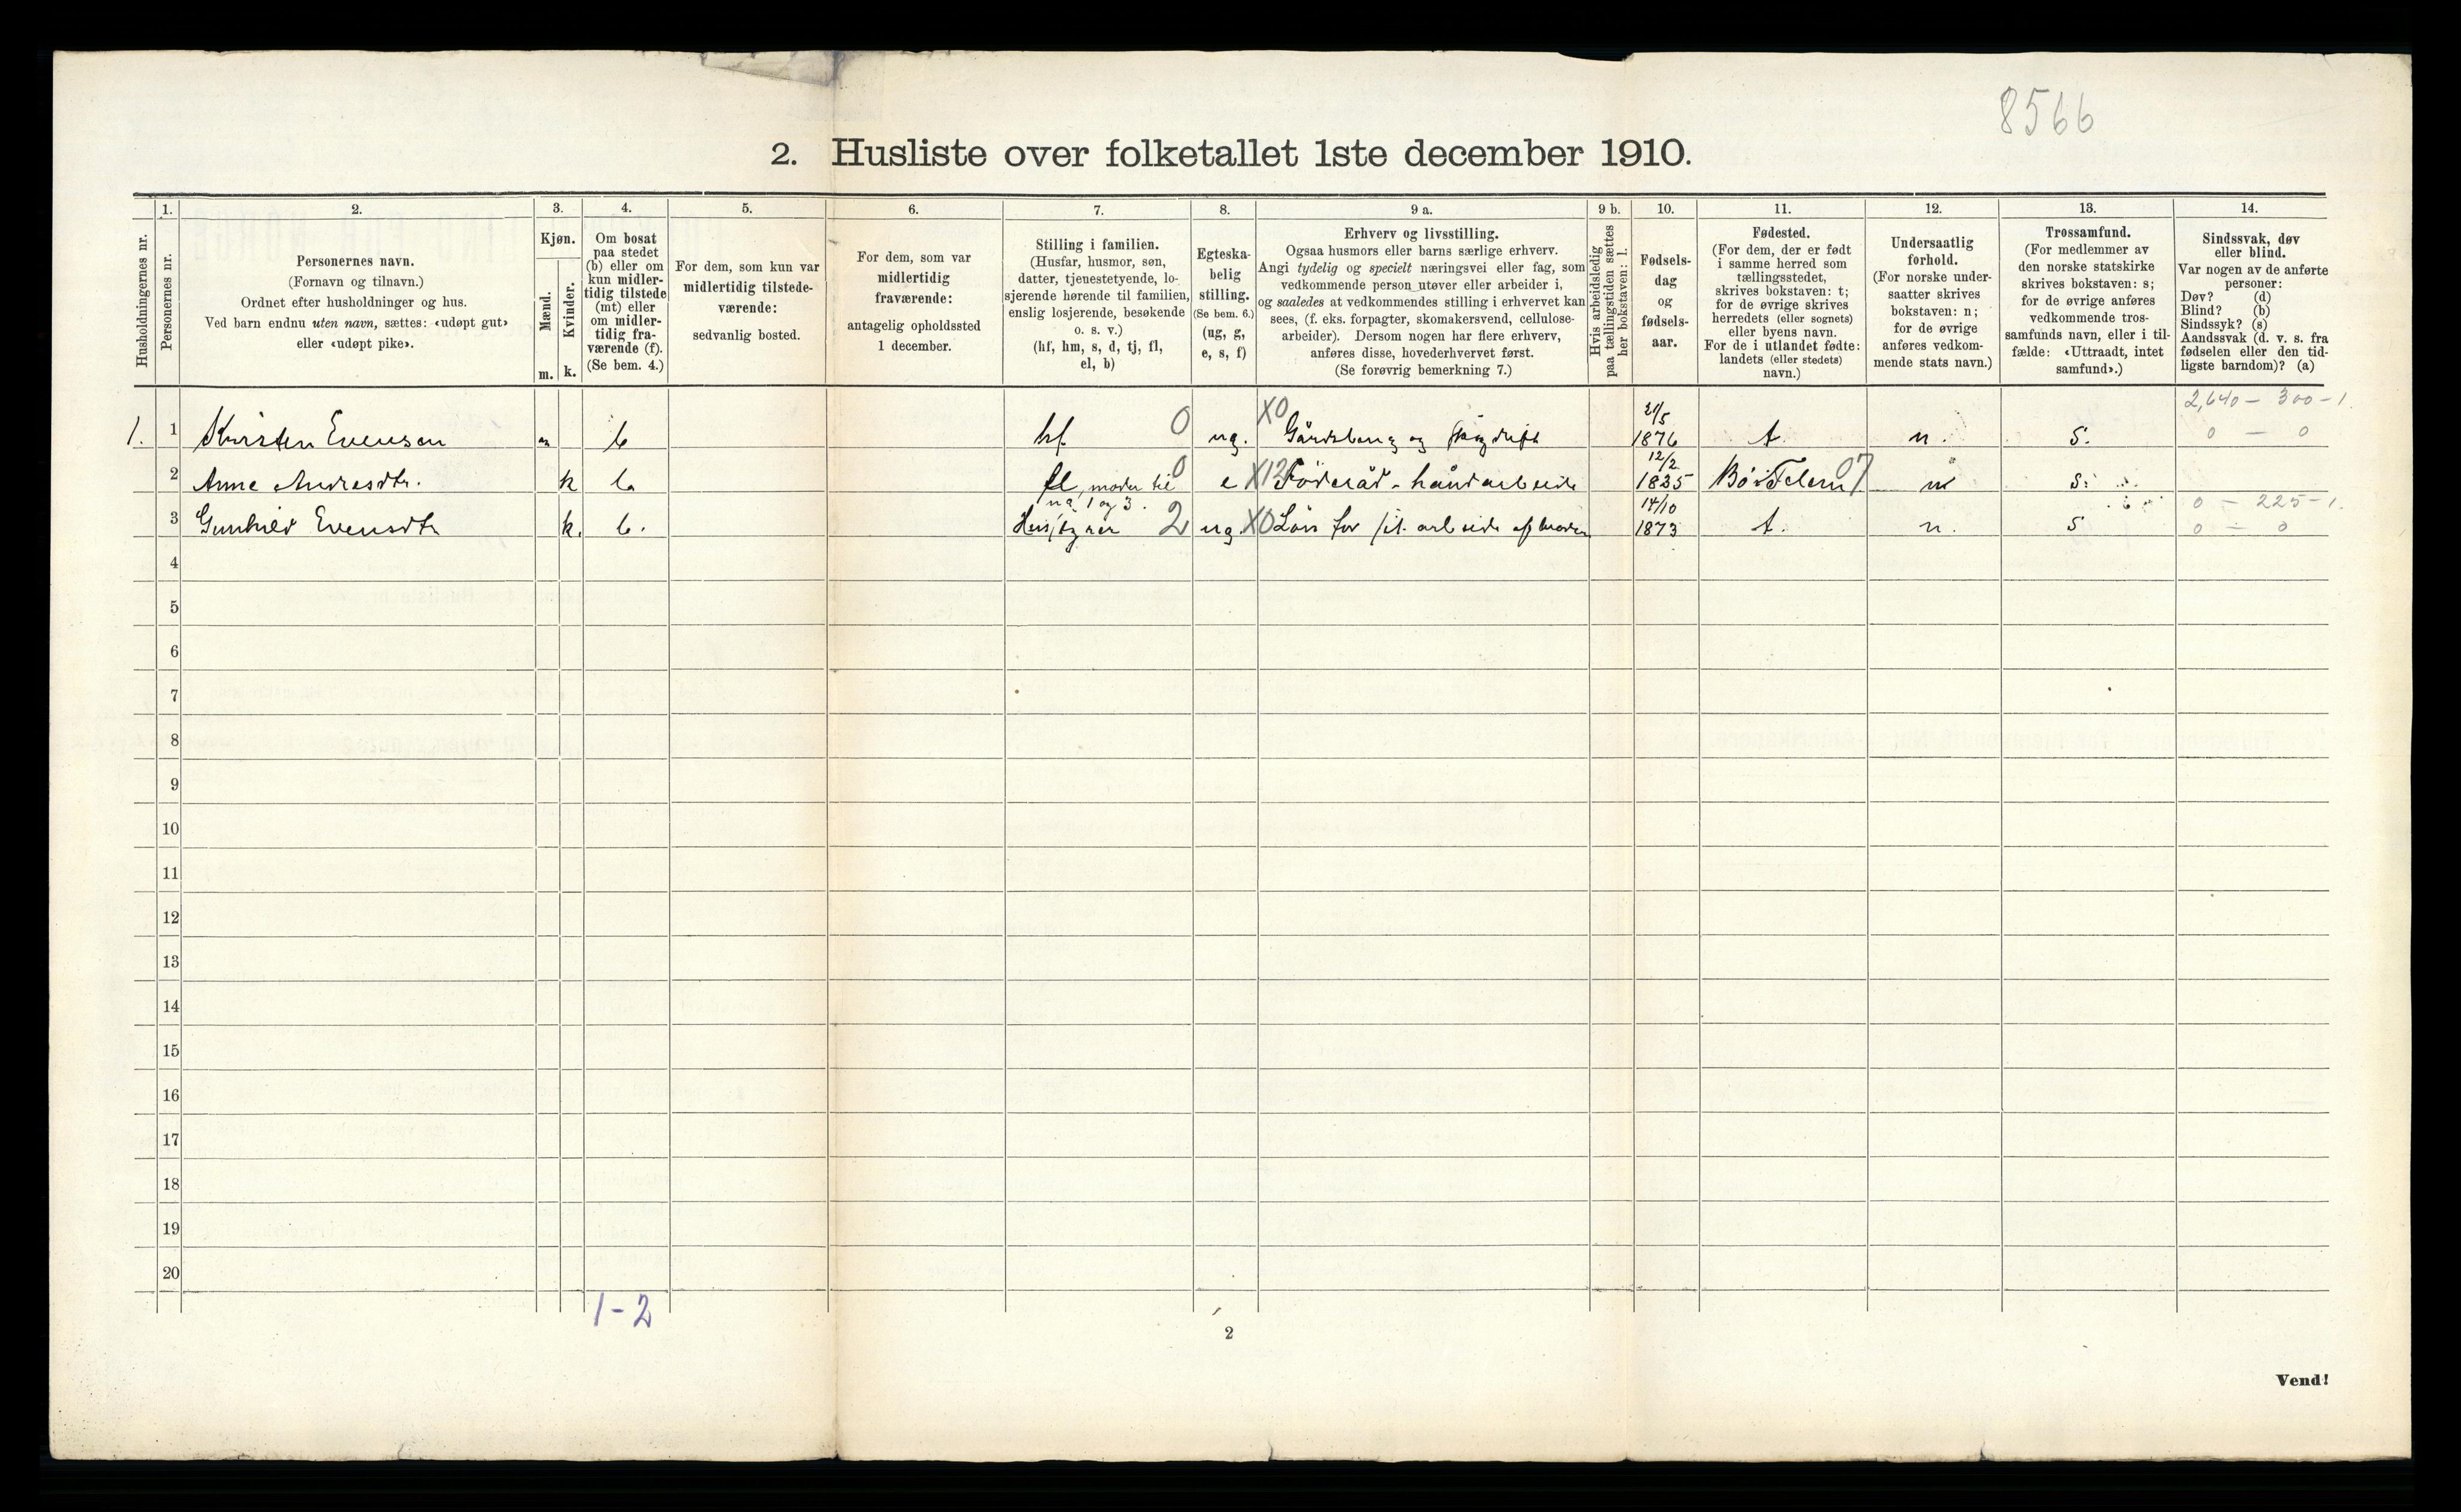 8566
2. Husliste over folketallet 1ste december 1910.
Husholdningernes nr.
1.
Personernes nr.
2.
Personernes navn.
(Fornavn og tilnavn.)
Ordnet efter husholdninger og hus.
Ved barn endnu uten navn, sættes: «udøpt gut»
eller «udøpt pike».
3.
Kjøn.
Mænd.
Kvinder.
m. k.
4.
Om bosat
paa stedet
(b) eller om
kun midler-
tidig tilstede
(mt) eller
om midler-
tidig fra-
værende (f).
(Se bem. 4.)
5.
For dem, som kun var
midlertidig tilstede-
værende:
sedvanlig bosted.
6.
For dem, som var
midlertidig
fraværende:
antagelig opholdssted
1 december.
7.
Stilling i familien.
(Husfar, husmor, søn,
datter, tjenestetyende, lo-
sjerende hørende til familien,
enslig losjerende, besøkende
o. s. v.)
(hf, hm, s, d, tj, fl,
el, b)
8.
Egteska-
belig
stilling.
(Se bem. 6.)
(ug, g,
e, s, f)
9 a.
Erhverv og livsstilling.
Ogsaa husmors eller barns særlige erhverv.
Angi tydelig og specielt næringsvei eller fag, som
vedkommende person utøver eller arbeider i,
og saaledes at vedkommendes stilling i erhvervet kan
sees, (f. eks. forpagter, skomakersvend, cellulose-
arbeider). Dersom nogen har flere erhverv,
anføres disse, hovederhvervet først.
(Se forøvrig bemerkning 7.)
9 b.
Hvis arbeidsledig
paa tællingstiden sættes
her bokstaven: l.
10.
Fødsels-
dag
og
fødsels-
aar.
11.
Fødested.
(For dem, der er født
i samme herred som
tællingsstedet,
skrives bokstaven: t;
for de øvrige skrives
herredets (eller sognets)
eller byens navn.
For de i utlandet fødte:
landets (eller stedets)
navn.)
12.
Undersaatlig
forhold.
(For norske under-
saatter skrives
bokstaven: n;
for de øvrige
anføres vedkom-
mende stats navn.)
13.
Trossamfund.
(For medlemmer av
den norske statskirke
skrives bokstaven: s;
for de øvrige anføres
vedkommende tros-
samfunds navn, eller i til-
fælde: «Uttraadt, intet
samfund».)
14.
Sindssvak, døv
eller blind.
Var nogen av de anførte
personer:
Døv? (d)
Blind? (b)
Sindssyk? (s)
Aandssvak (d. v. s. fra
fødselen eller den tid-
ligste barndom)? (a)
2,640 - 300 - 1.
1. 1 Kirsten Evensen m b hf 0 ug. X0 Gårdsbrug og 21/5 1876 t. n. s. 0 - 0
2 Anne Andresdtr. k b fl, moder til na 1 og 3. 0 e X12 Föderåd - håndarbeide 12/2 1835 Bö i Telem 07 n s.
0 - 225 - 1.
3 Gunhild Evensdtr k. b. 2 ug X0 Lön for arbeide af broder 14/10 1873 t. n. s 0 - 0
4
5
6
7
8
9
10
11
12
13
14
15
16
17
18
19
20
1-2
2
Vend!